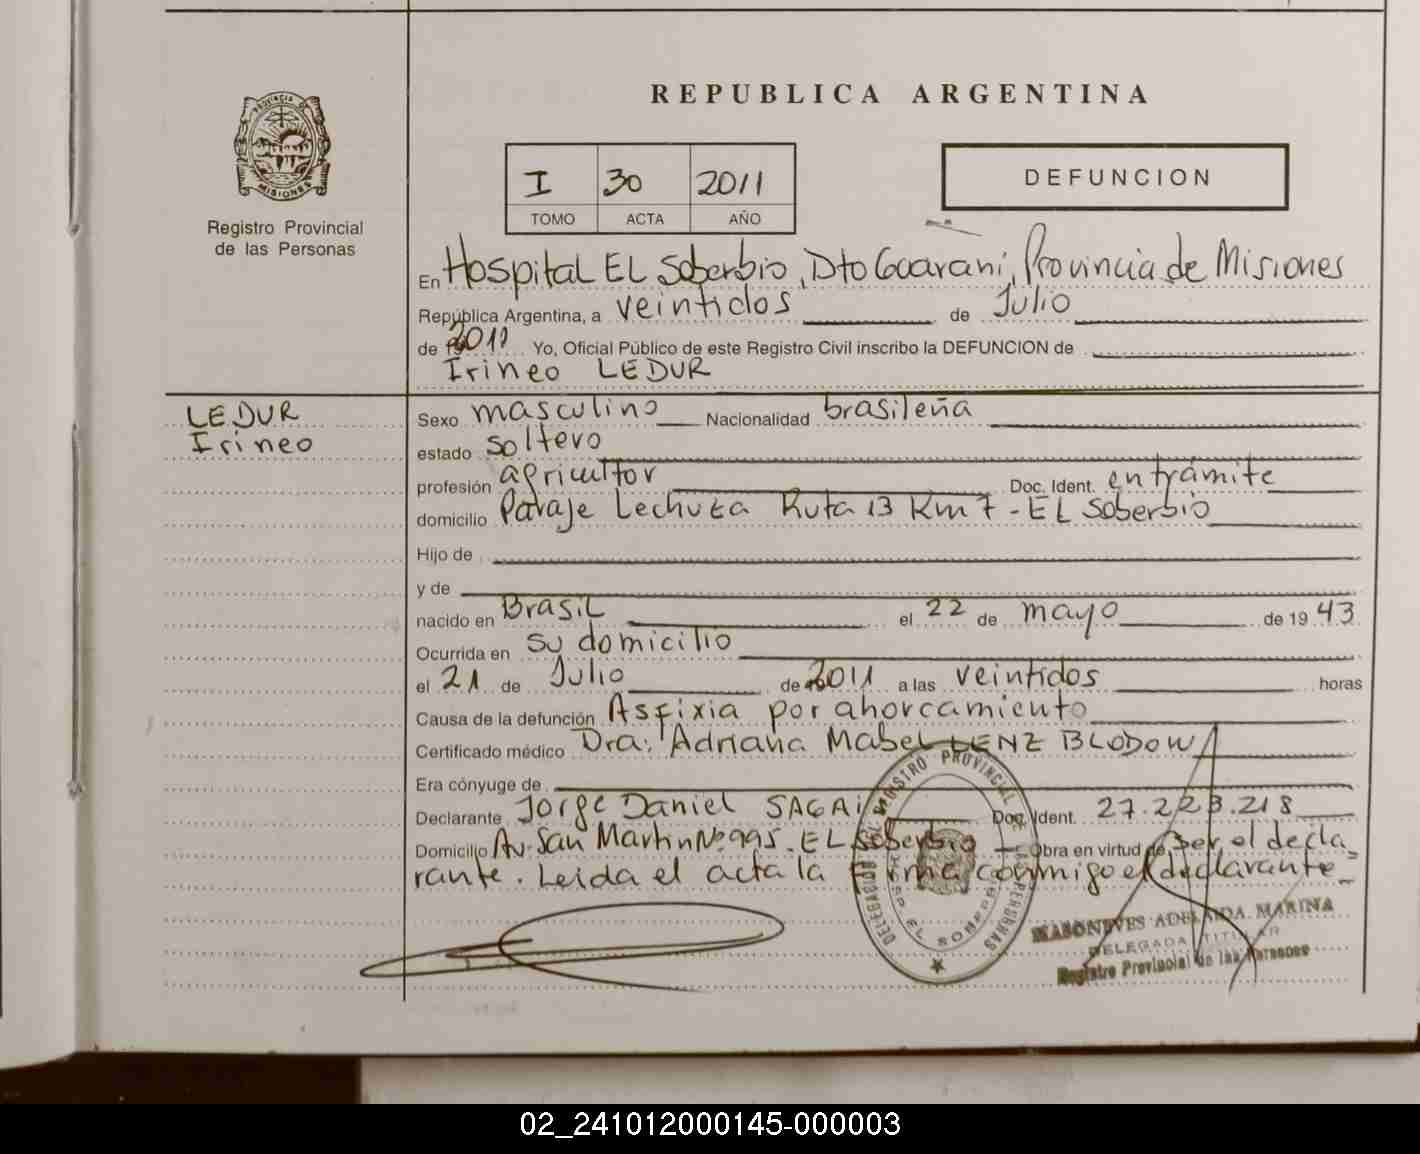 REPUBLICA ARGENTINA
PROVINCIA D
MISIONES
Registro Provincial
de las Personas
I 30 2011
TOMO ACTA AÑO
DEFUNCION
En Hospital EL Soberbio, Dto Guaraní, Provincia de Misiones
República Argentina, a veintidos de Julio
de 2011 Yo, Oficial Público de este Registro Civil inscribo la DEFUNCION de
Irineo LEDUR
LEDUR
Irineo
Sexo masculino Nacionalidad brasileña
estado soltero
profesión agricultor Doc. Ident. en trámite
domicilio Paraje Lechuza Ruta 13 Km 7 - EL Soberbio
Hijo de
y de
nacido en Brasil el 22 de mayo de 19 43
Ocurrida en su domicilio
el 21 de Julio de 2011 a las veintidos horas
Causa de la defunción Asfixia por ahorcamiento
Certificado médico Dra. Adriana Mabel LENZ BLODOW
Era cónyuge de
Declarante Jorge Daniel SAGAI Doc. Ident. 27.223.218
Domicilio Av. San Martin Nº 995 - EL Soberbio Obra en virtud de ser el decla_
rante. Leida el acta la firma conmigo el declarante_
REGISTRO PROVINCIAL DE LAS PERSONAS
DELEGACION
EL SOBERBIO
ADELAIDA MARINA
DELEGADA TITULAR
Registro Provincial de las Personas
02_241012000145-000003